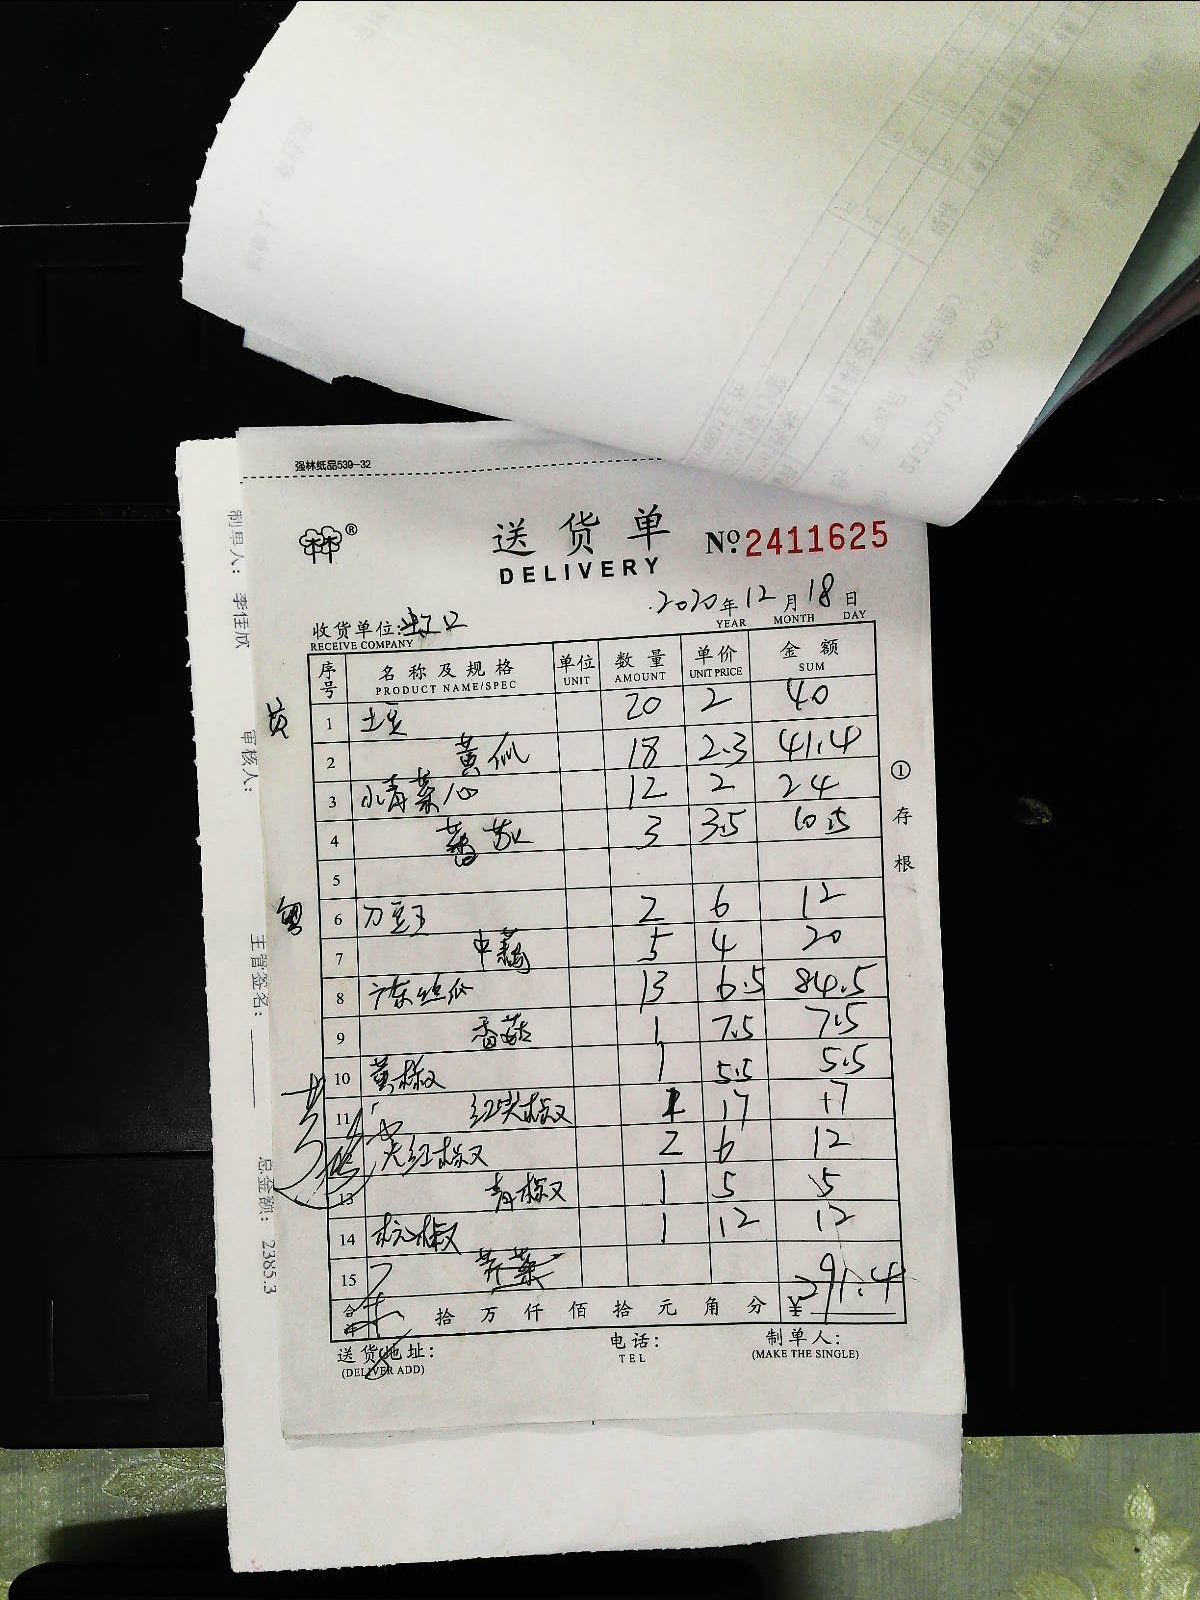 强林纸品539-32
送货单
DELIVERY
№ 2411625
2020年12月18日
YEAR MONTH DAY
收货单位:虹口
RECEIVE COMPANY
序号 名称及规格 单位 数量 单价 金额
PRODUCT NAME/SPEC UNIT AMOUNT UNIT PRICE SUM
1 土豆 20 2 40
2 黄瓜 18 2.3 41.4
3 小青菜心 12 2 24
4 蕃茄 3 3.5 10.5
5
6 刀豆王 2 6 12
7 5 4 20
8 广东丝瓜 13 6.5 84.5
9 香菇 1 7.5 7.5
10 黄椒 1 5.5 5.5
11 红尖椒 1 17 17
尖红椒 2 6 12
13 青椒 1 5 5
14 杭椒 1 12 12
15 荠菜
合计 拾万仟佰拾元角分 ¥291.4
送货地址: 电话: 制单人:
(DELIVER ADD) TEL (MAKE THE SINGLE)
①存根
制单人: 李佳欣
审核人:
主管签名:
总金额: 2385.3